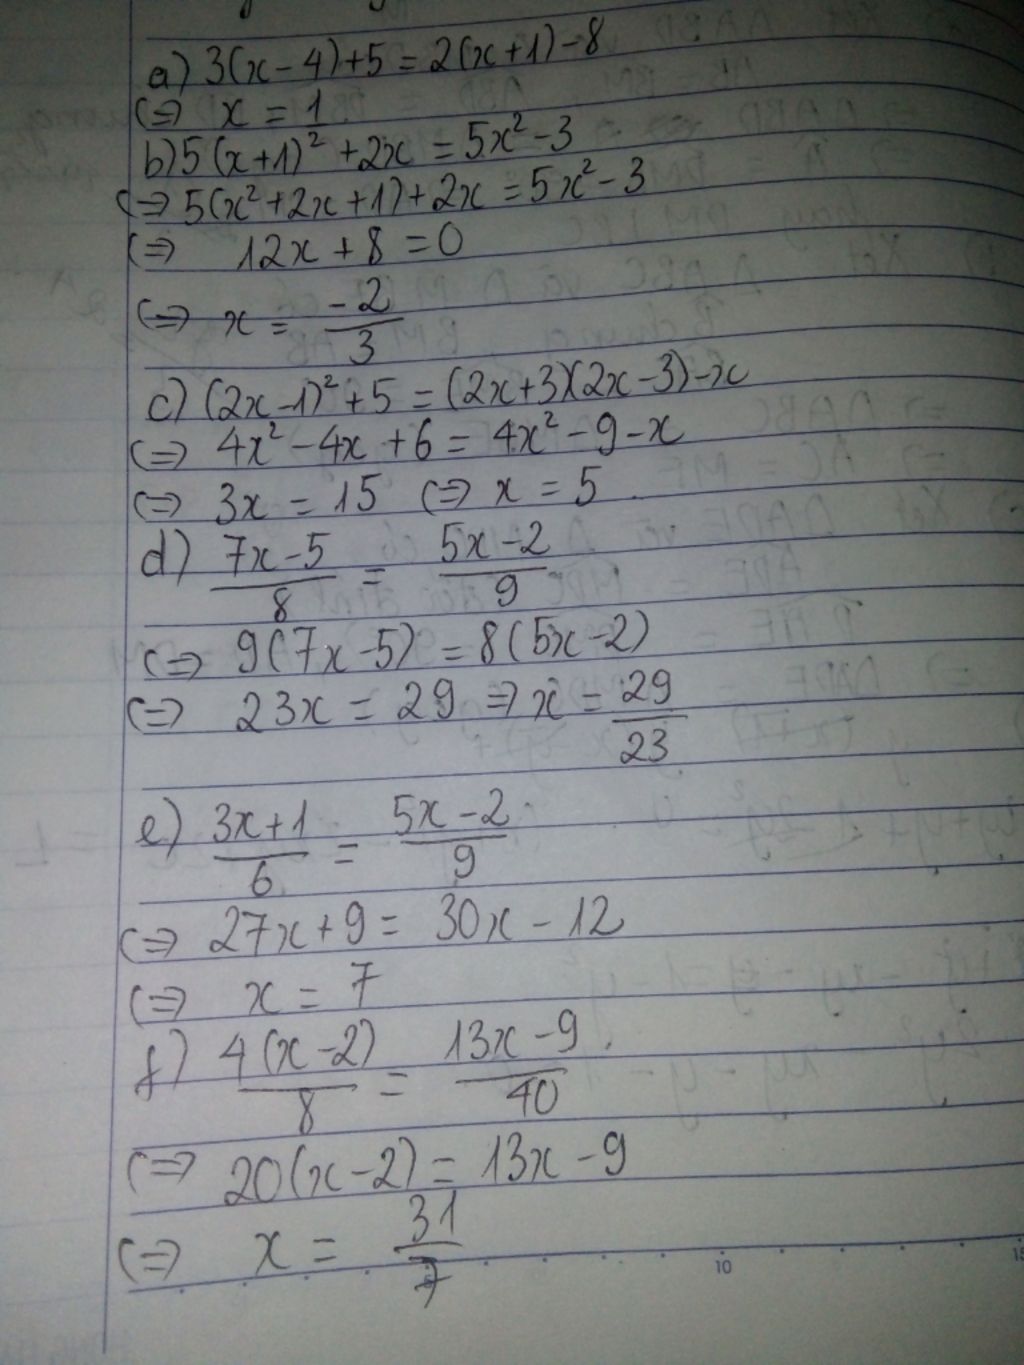 a) 3(x - 4) + 5 = 2(x + 1) - 8
(=) x = 1
b) 5(x + 1)² + 2x = 5x² - 3
(=) 5(x² + 2x + 1) + 2x = 5x² - 3
(=) 12x + 8 = 0
(=) x = -2/3
c) (2x - 1)² + 5 = (2x + 3)(2x - 3) - x
(=) 4x² - 4x + 6 = 4x² - 9 - x
(=) 3x = 15 (=) x = 5
d) (7x - 5)/8 = (5x - 2)/9
(=) 9(7x - 5) = 8(5x - 2)
(=) 23x = 29 => x = 29/23
e) (3x + 1)/6 = (5x - 2)/9
(=) 27x + 9 = 30x - 12
(=) x = 7
f) 4(x - 2)/8 = (13x - 9)/40
(=) 20(x - 2) = 13x - 9
(=) x = 31/7
10